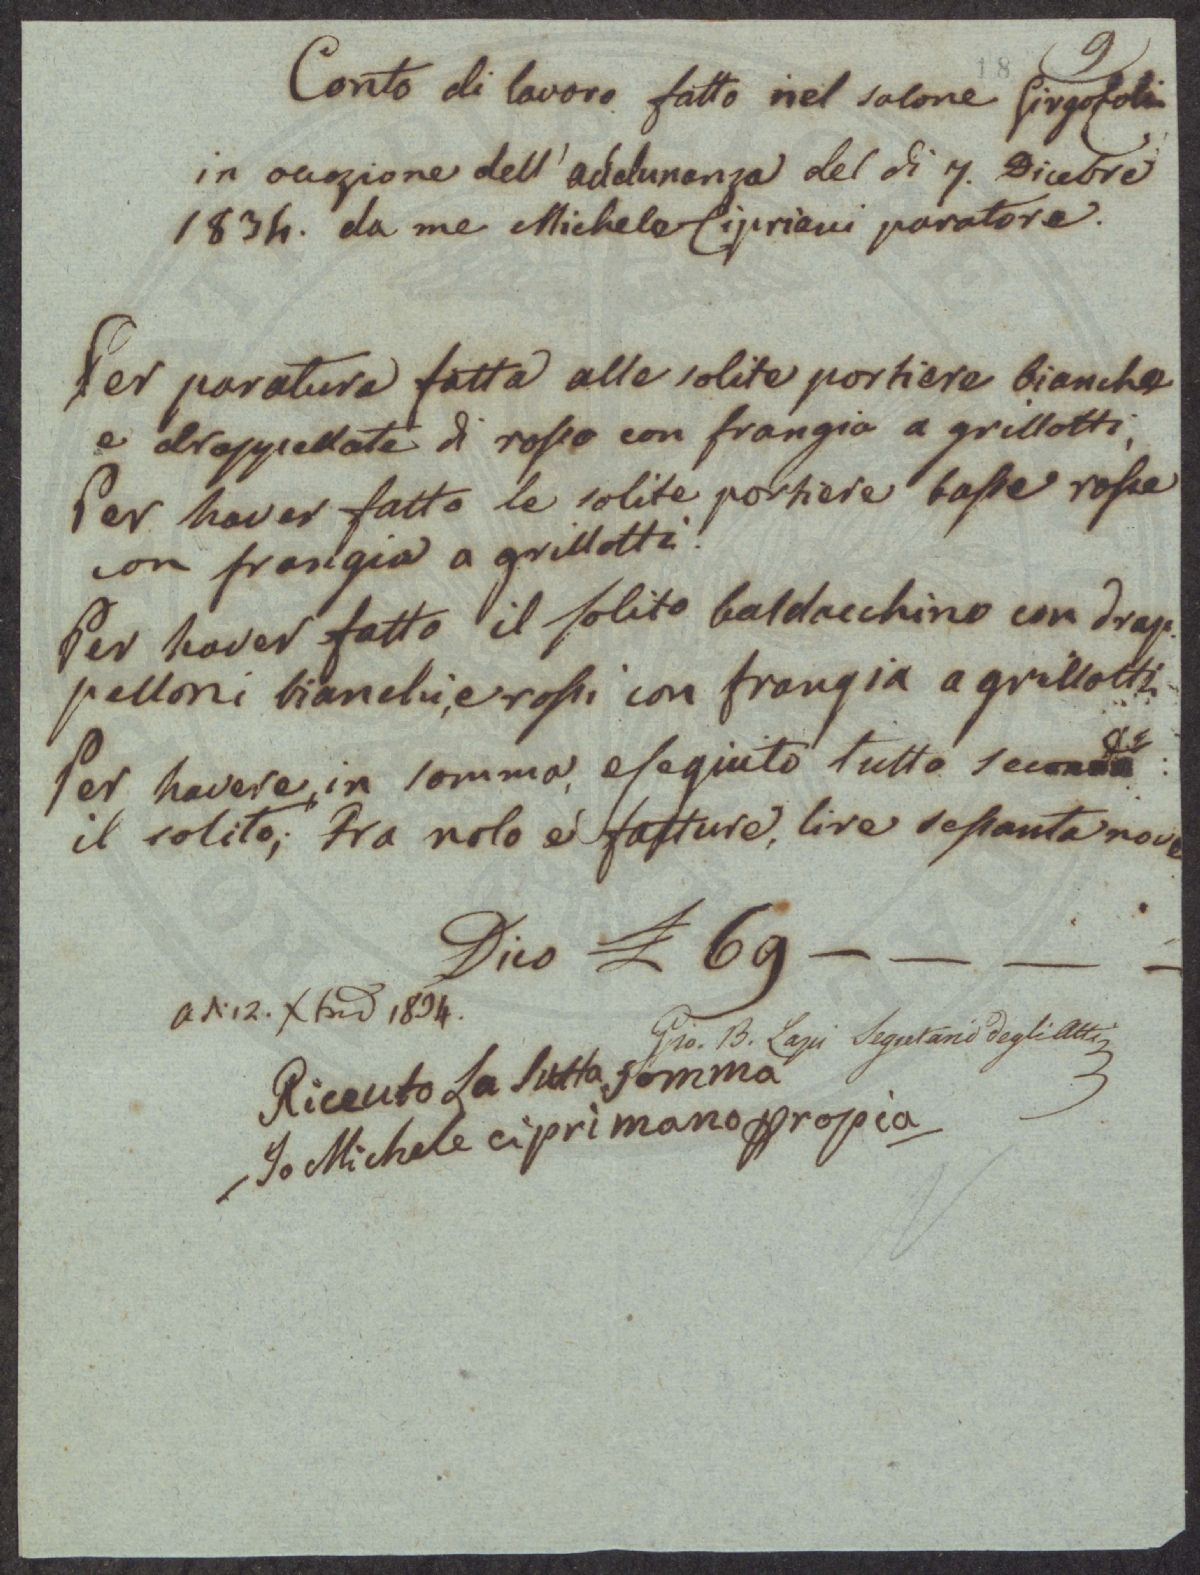 9
18
Conto di lavoro fatto nel salone Girgofoli
in ocazione dell' addunanza del dì 7. Dicebre
1834. da me Michele Cipriani paratore.
Per paratura fatta alle solite portiere bianche
e drappellate di rosso con frangia a grillotti,
Per haver fatto le solite portiere basse rosse
con frangia a grillotti.
Per haver fatto il solito baldacchino con drap-
pelloni bianchi, e rossi con frangia a grillotti
Per havere, in somma, eseguito tutto
il solito; tra nolo e fatture, lire sessanta nove
Dico £ 69 — — — —
a dì 12. Xbre 1834.
Gio. B. Lapi Segretario degli Atti
Riceuto La Sutta somma
Io Michele cipri mano propia